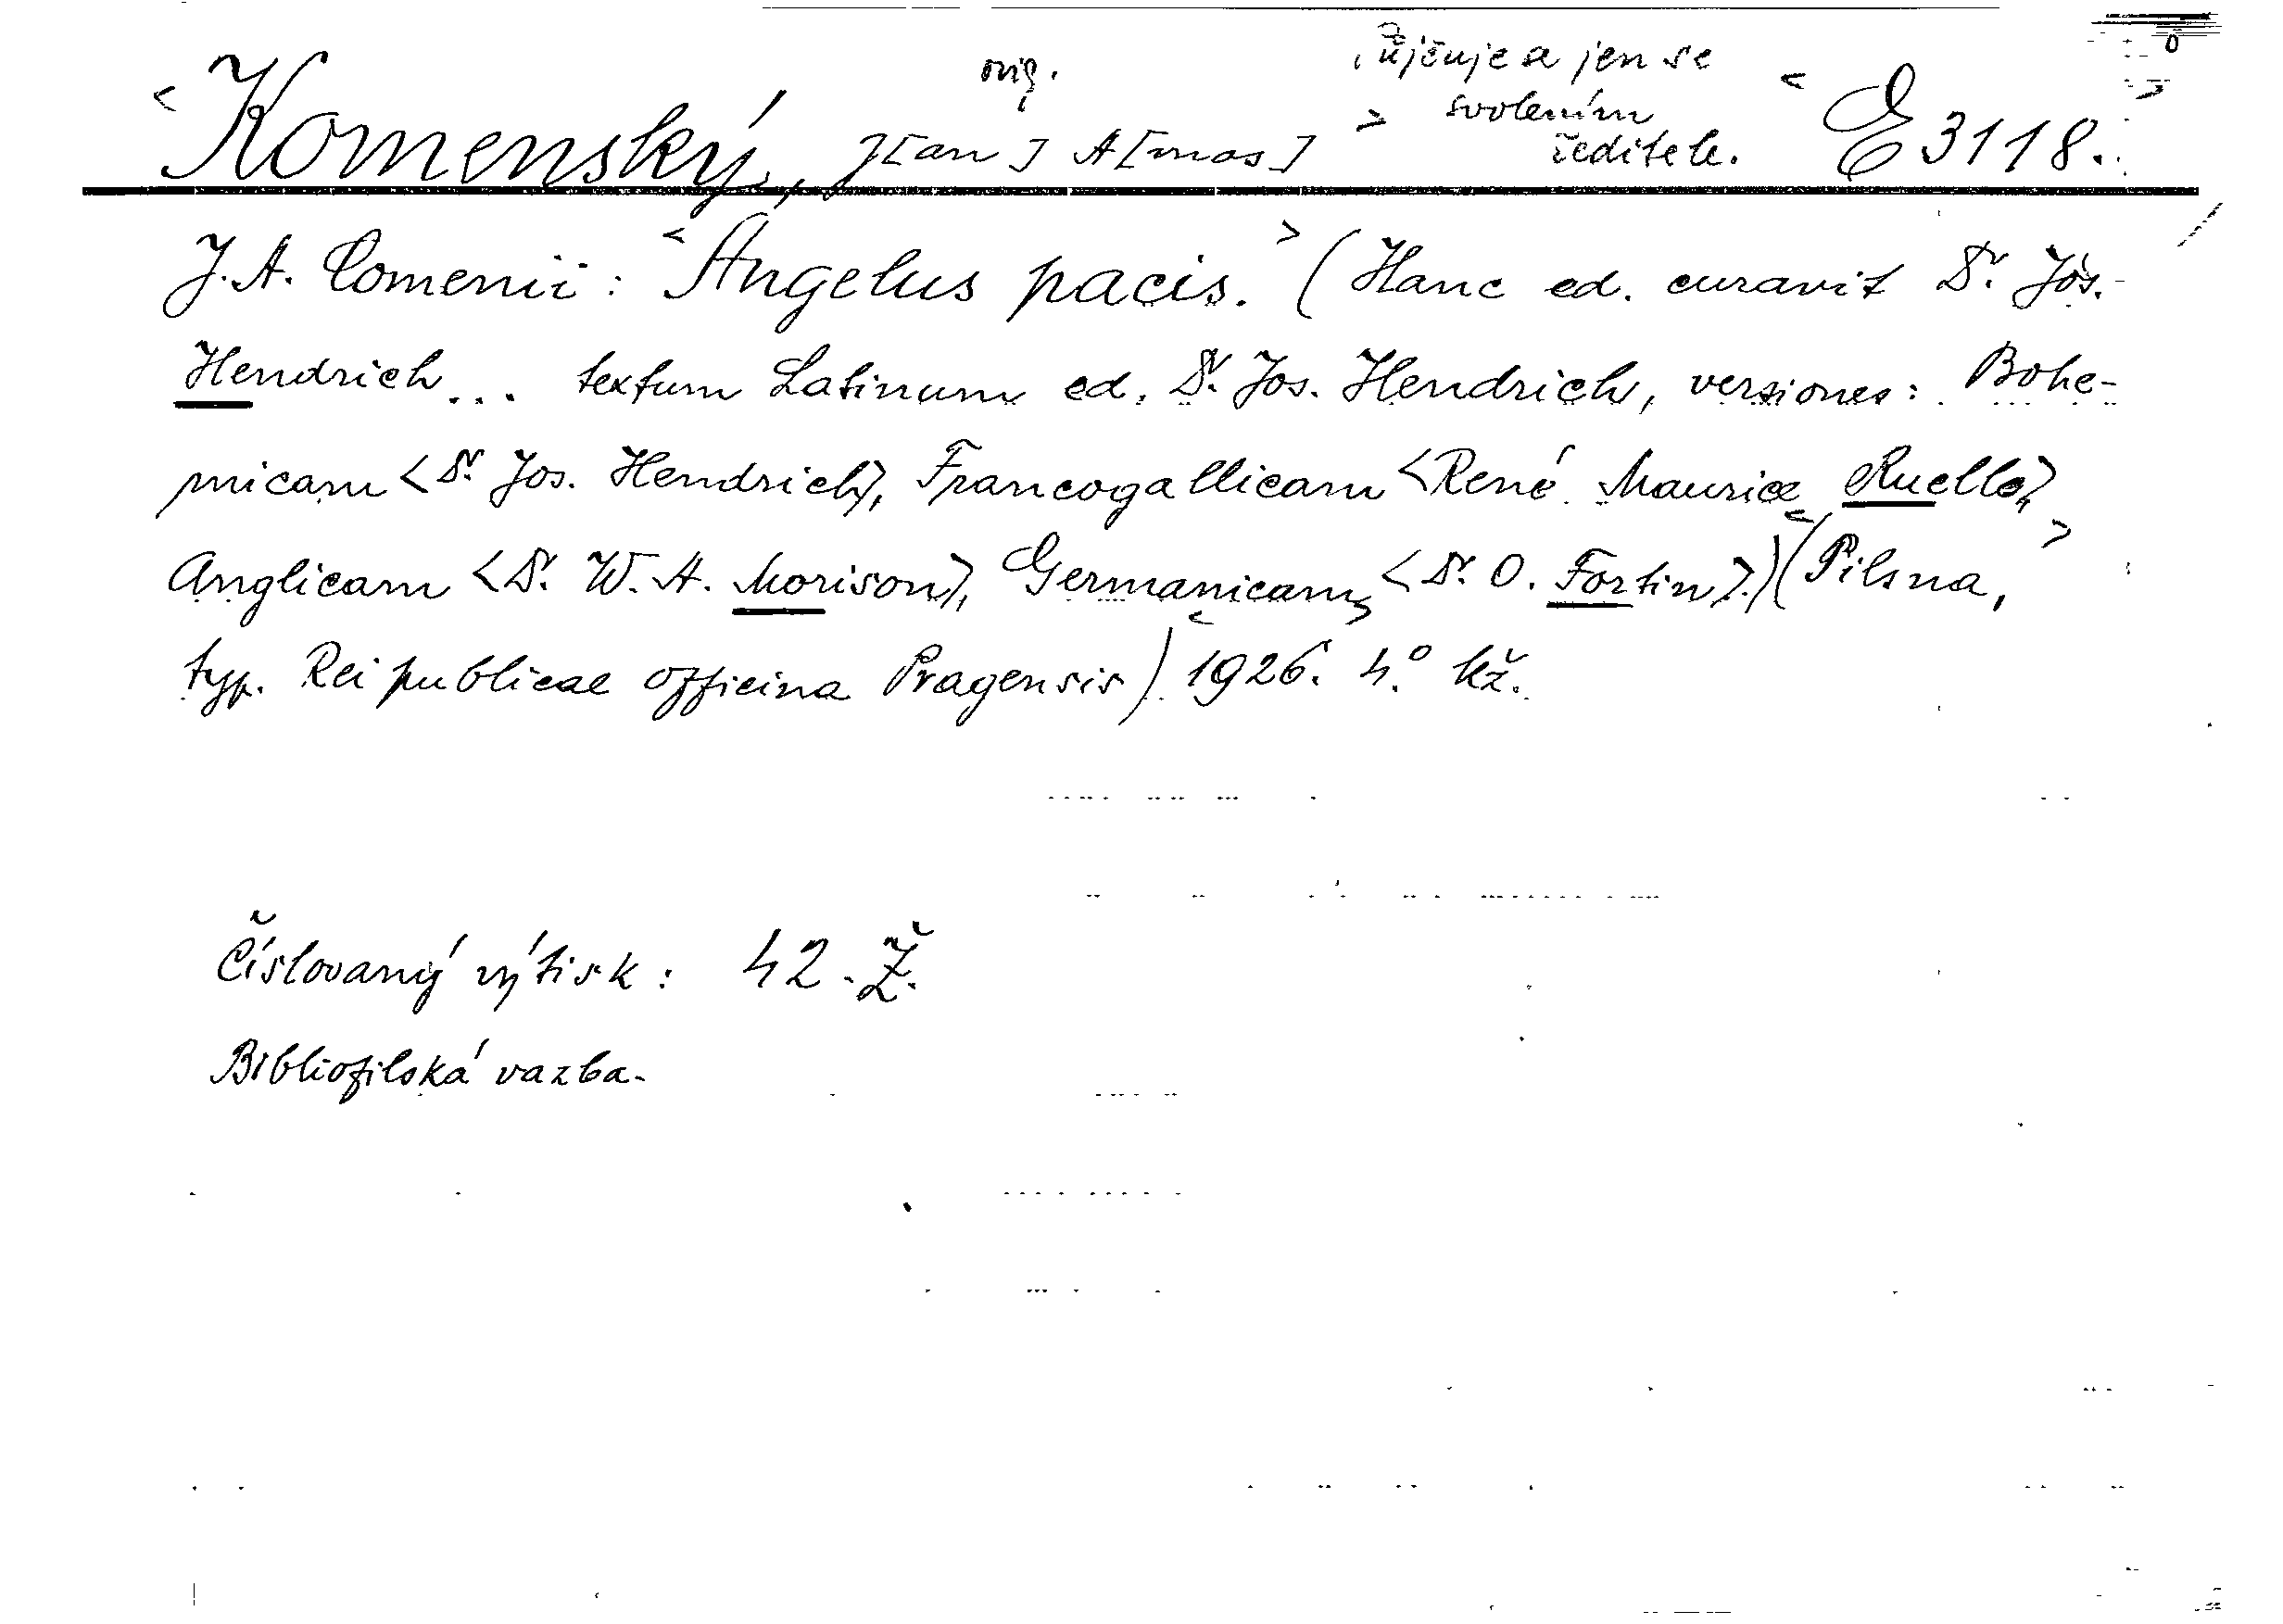 orig. Půjčuje se jen se
<Komenský, J[an] A[mos]> svolením <E 3118.>
ředitele.
J. A. Comenii: <Angelus pacis.> (Hanc ed. curavit Dr. Jos.
Hendrich... textum Latinum ed. Dr. Jos. Hendrich, versiones: Bohe-
micam <Dr. Jos. Hendrich>, Francogallicam <René Maurice Ruello>,
Anglicam <Dr. W. A. Morison>, Germanicam <Dr. O. Fortin>.) <(Pilsna,>
typ. Rei publicae officina Pragensis) <1926. 4.° kž.
Číslovaný výtisk: 42. Ž.
Bibliofilská vazba.